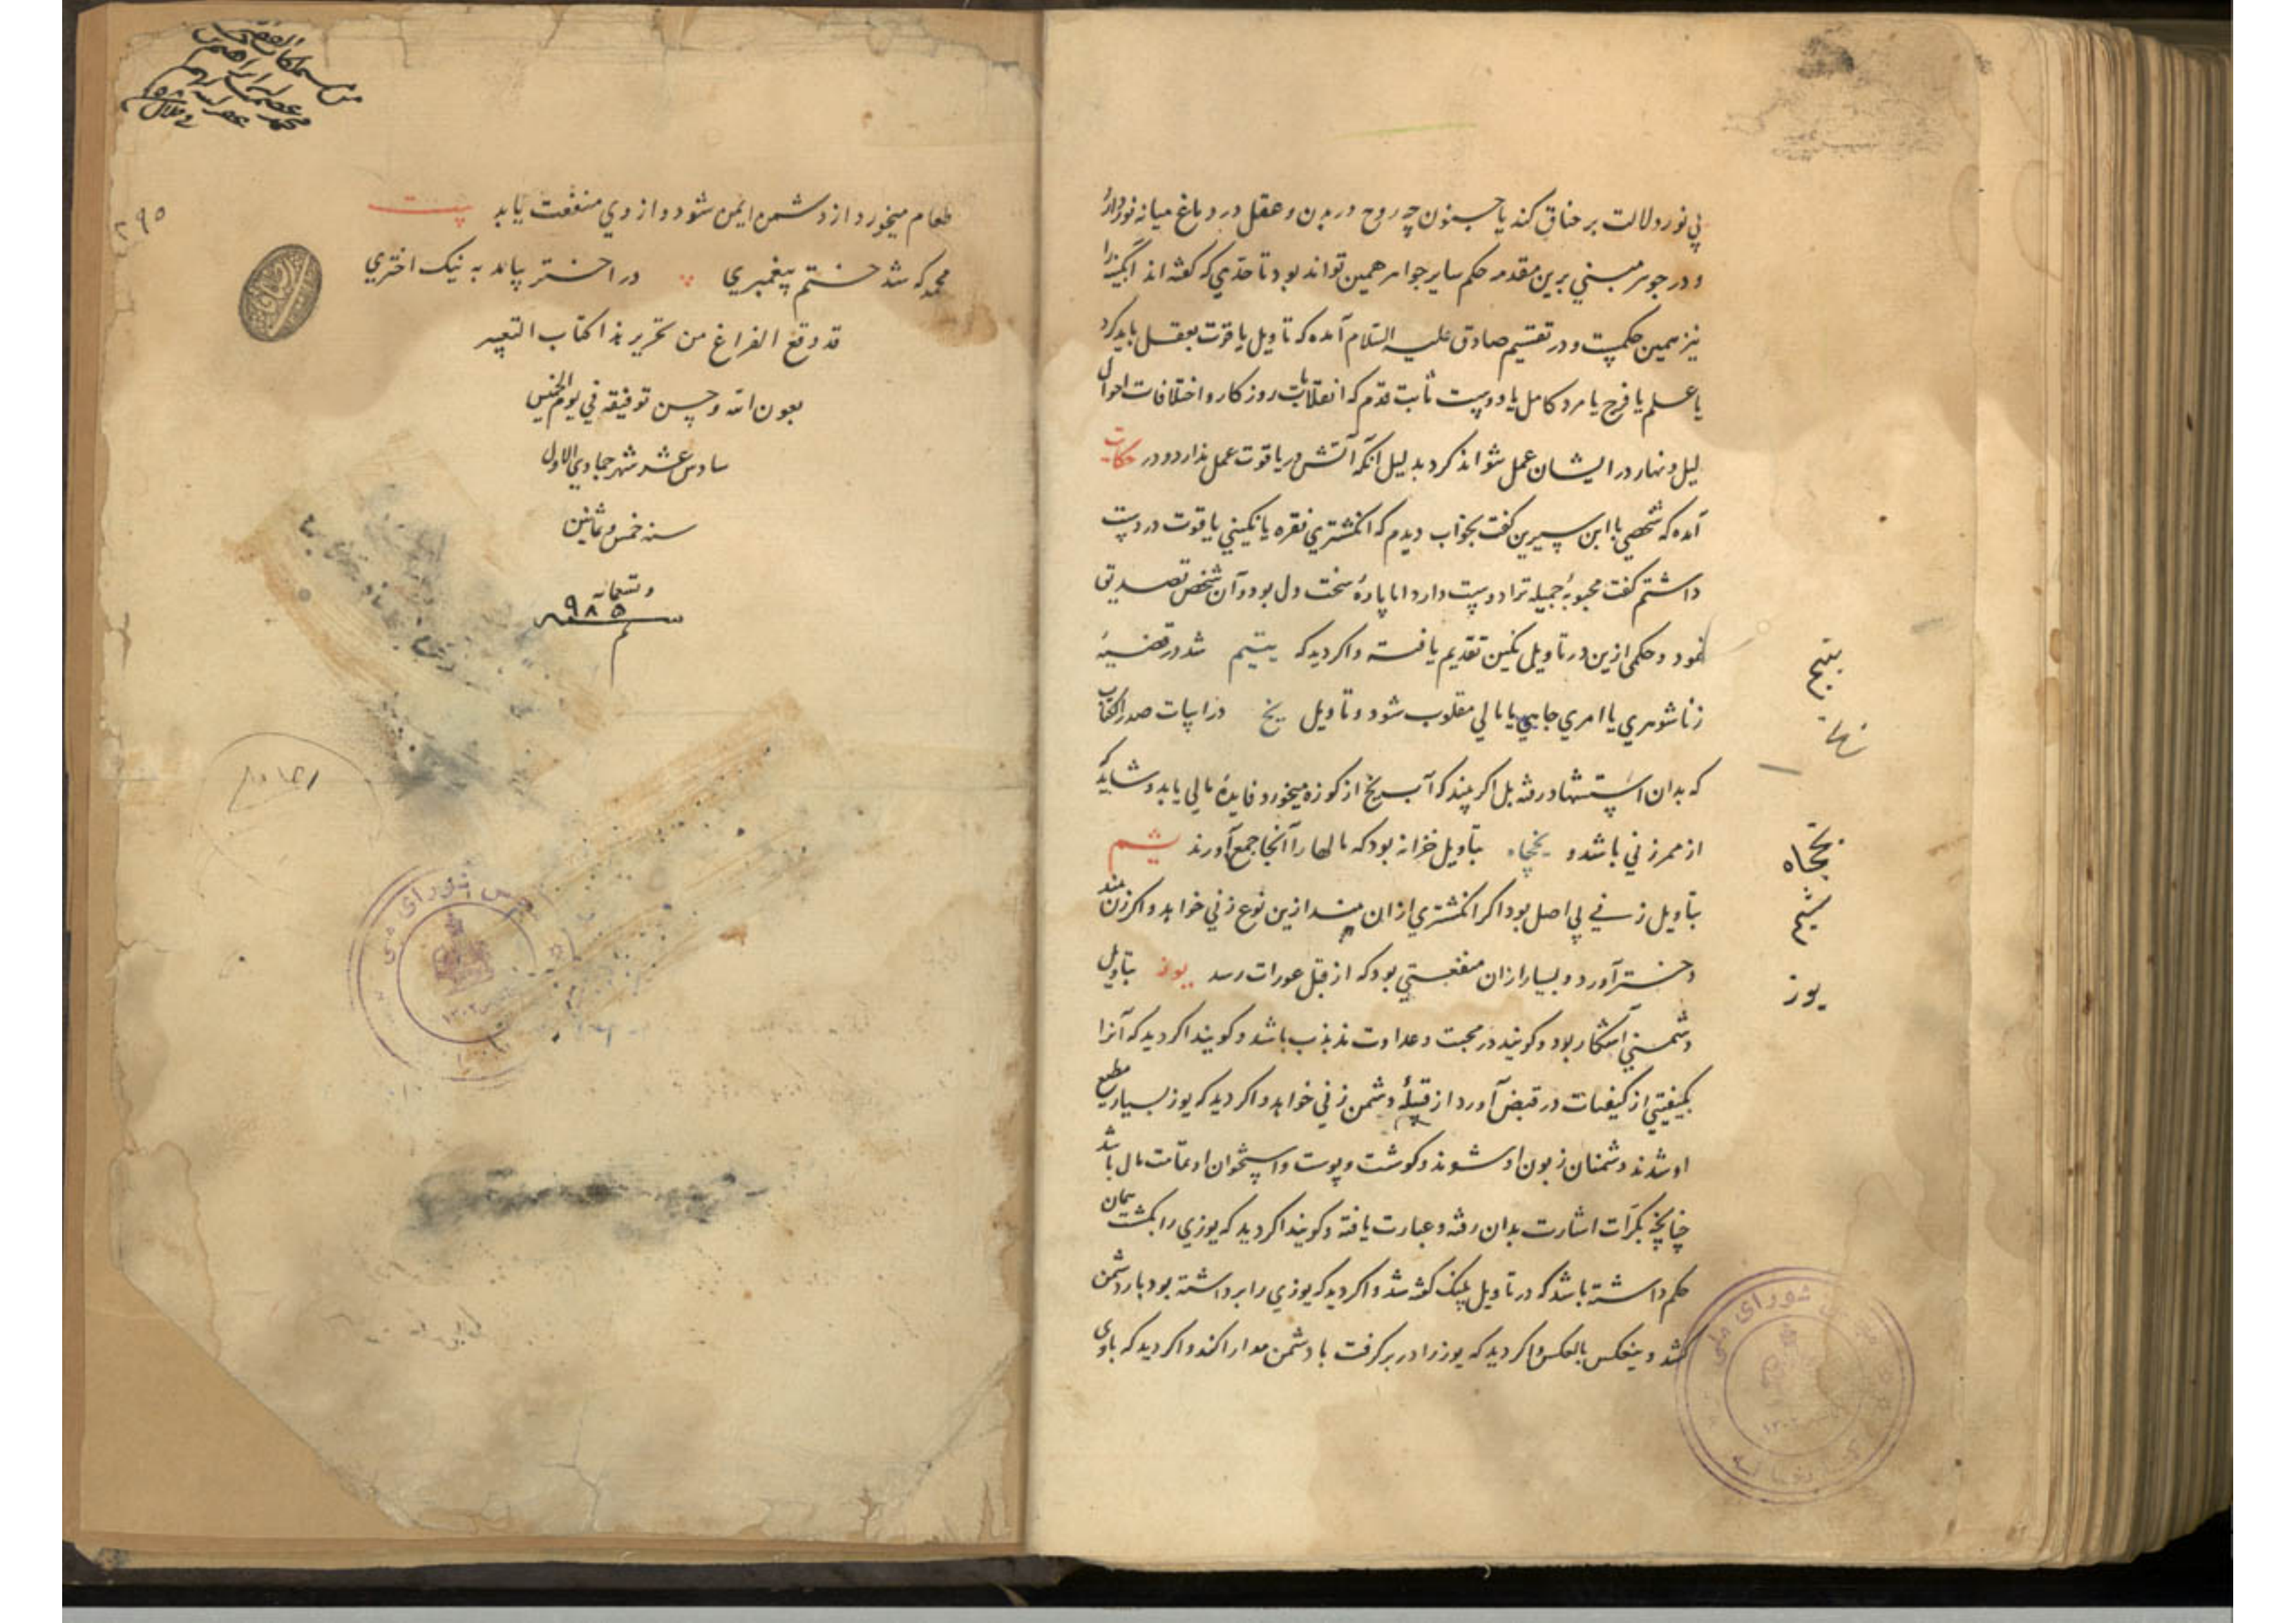 پی نور دلالت بر خناق کند یا جنون چه روح در بدن و عقل در دماغ میانه نور دارد
و در جوهر مبنی برین مقدمه حکم سایر جواهر همین تواند بود تا حدی که گفته اند آبگینه را
نیز همین حکمست و در تقسیم صادق علیه السلام آمده که تاویل یاقوت بعقل باید کرد
یا علم یا فرح یا مرد کامل یا دوست ثابت قدم که انقلابات روزکار و اختلافات احوال
لیل و نهار در ایشان عمل نتواند کرد بدلیل آنکه آتش در یاقوت عمل ندارد و در حکایت
آمده که شخصی با ابن سیرین گفت بخواب دیدم که انگشتری نقره یا نگینی یاقوت در دست
داشتم گفت محبوبه جمیله ترا دوست دارد اما پاره سخت دل بود و آن شخص تصدیق
نمود و حکمی ازین در تاویل نگین تقدیم یافته و اگر دید که یتیم شد در قضیه
زناشوهری یا امری جاهی یا مالی مقلوب شود و تاویل یخ در ابیات صدر الکتاب
که بدان استشهاد رفته بل اگر بیند که آب یخ از کوزه میخورد فایده مالی یابد و شاید که
از ممر زنی باشد و یخچاه بتاویل خزانه بود که مالها را آنجا جمع آورند یشم
بتاویل زنی بی اصل بود اگر انگشتری ازان بیند ازین نوع زنی خواهد و اگر زن بیند
دختر آورد و بسیار ازان منفعتی بود که از قبل عورات رسد یوز بتاویل
دشمنی آشکار بود و گویند در محبت و عداوت مذبذب باشد و گویند اگر دید که آنرا
بکیفیتی از کیفیات در قبض آورد از قبیله دشمن زنی خواهد و اگر دید که یوز بسیار مطیع
او شدند دشمنان زبون او شوند و گوشت و پوست و استخوان او علامت مال باشد
چنانچه بکرات اشارت بدان رفته و عبارت یافته و گویند اگر دید که یوزی را بکشت همان
حکم داشته باشد که در تاویل پلنگ گفته شد و اگر دید که یوزی را برداشته بود بار دشمن
کشد و ینعکس بالعکس و اگر دید که یوز را در بر گرفت با دشمن مدارا کند و اگر دید که با وی
یتیم
یخچاه
یشم
یوز
طعام میخورد از دشمن ایمن شود و از وی منفعت یابد بیت
محمد که شد ختم پیغمبری در اختر بماند به نیک اختری
قد وقع الفراغ من تحریر هذا کتاب التعبیر
بعون الله و حسن توفیقه فی یوم الخمیس
سادس عشر شهر جمادی الاول
سنه خمس و ثمانین
و تسعمائه
۹۸۵
م
۲۹۵
شورای ملی
۱۳۰۲